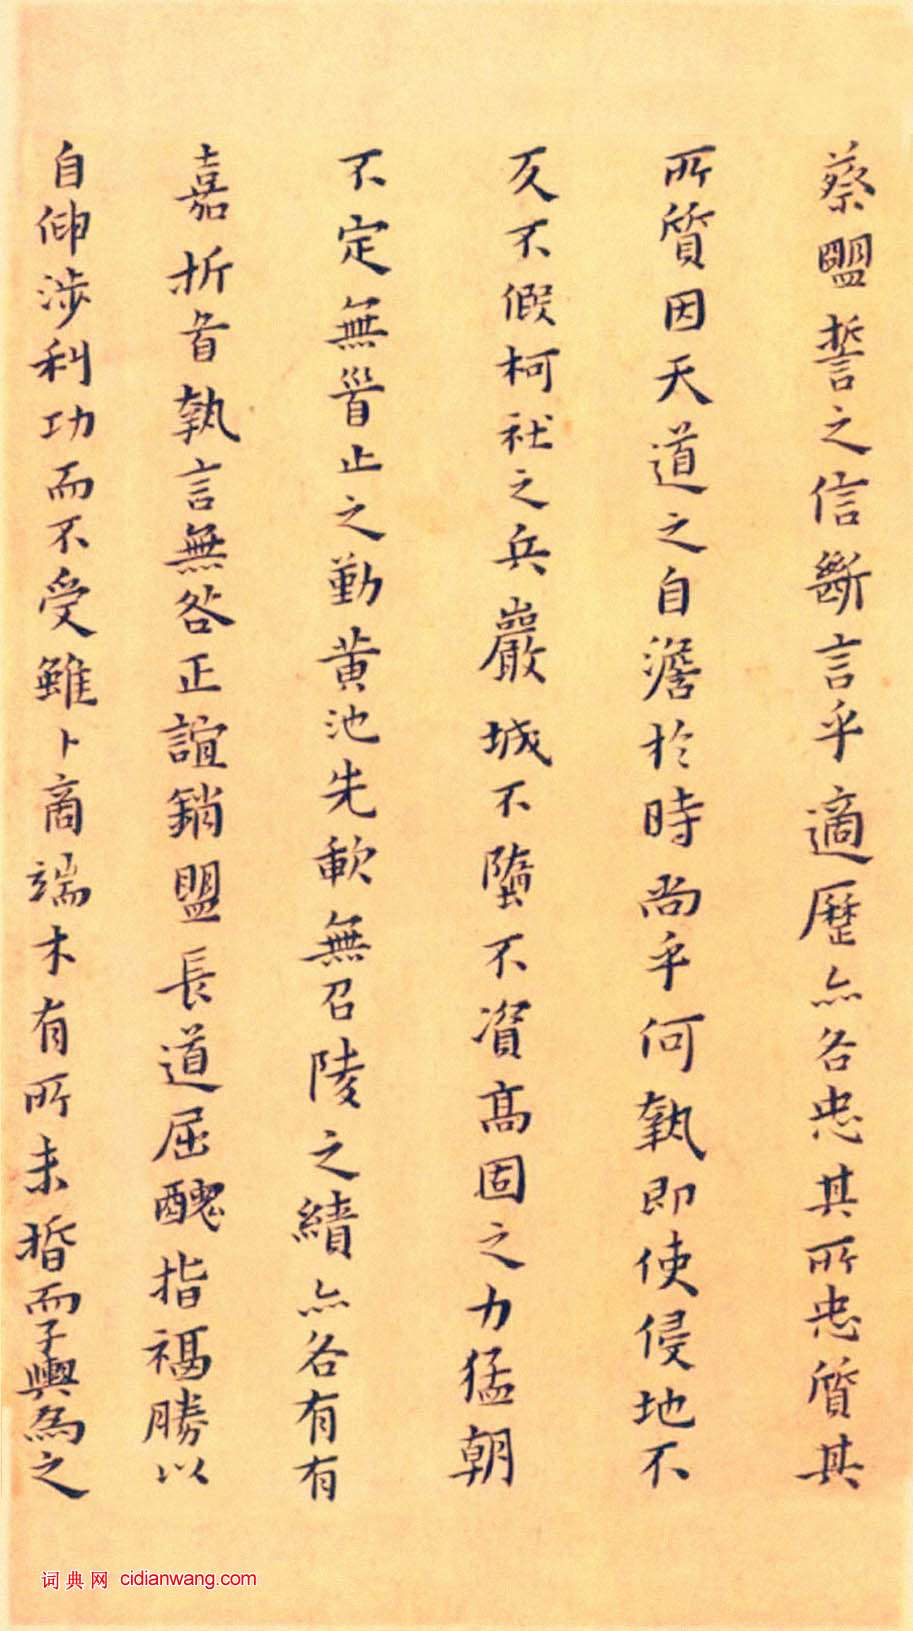 蔡盟誓之信斷言乎適歷亦各忠其所忠質其
所質因天道之自澹於時尚乎何執即使侵地不
不假柯社之兵巖城不墮不資高固之力猛朝
不定無首止之勤黃池先歃無召陵之績亦各有有
嘉折首執言無咎正誼銷盟長道屈醜指禍勝以
自伸涉利功而不受雖卜商端木有所未惛而子輿為之
词典网 cidianwang.com